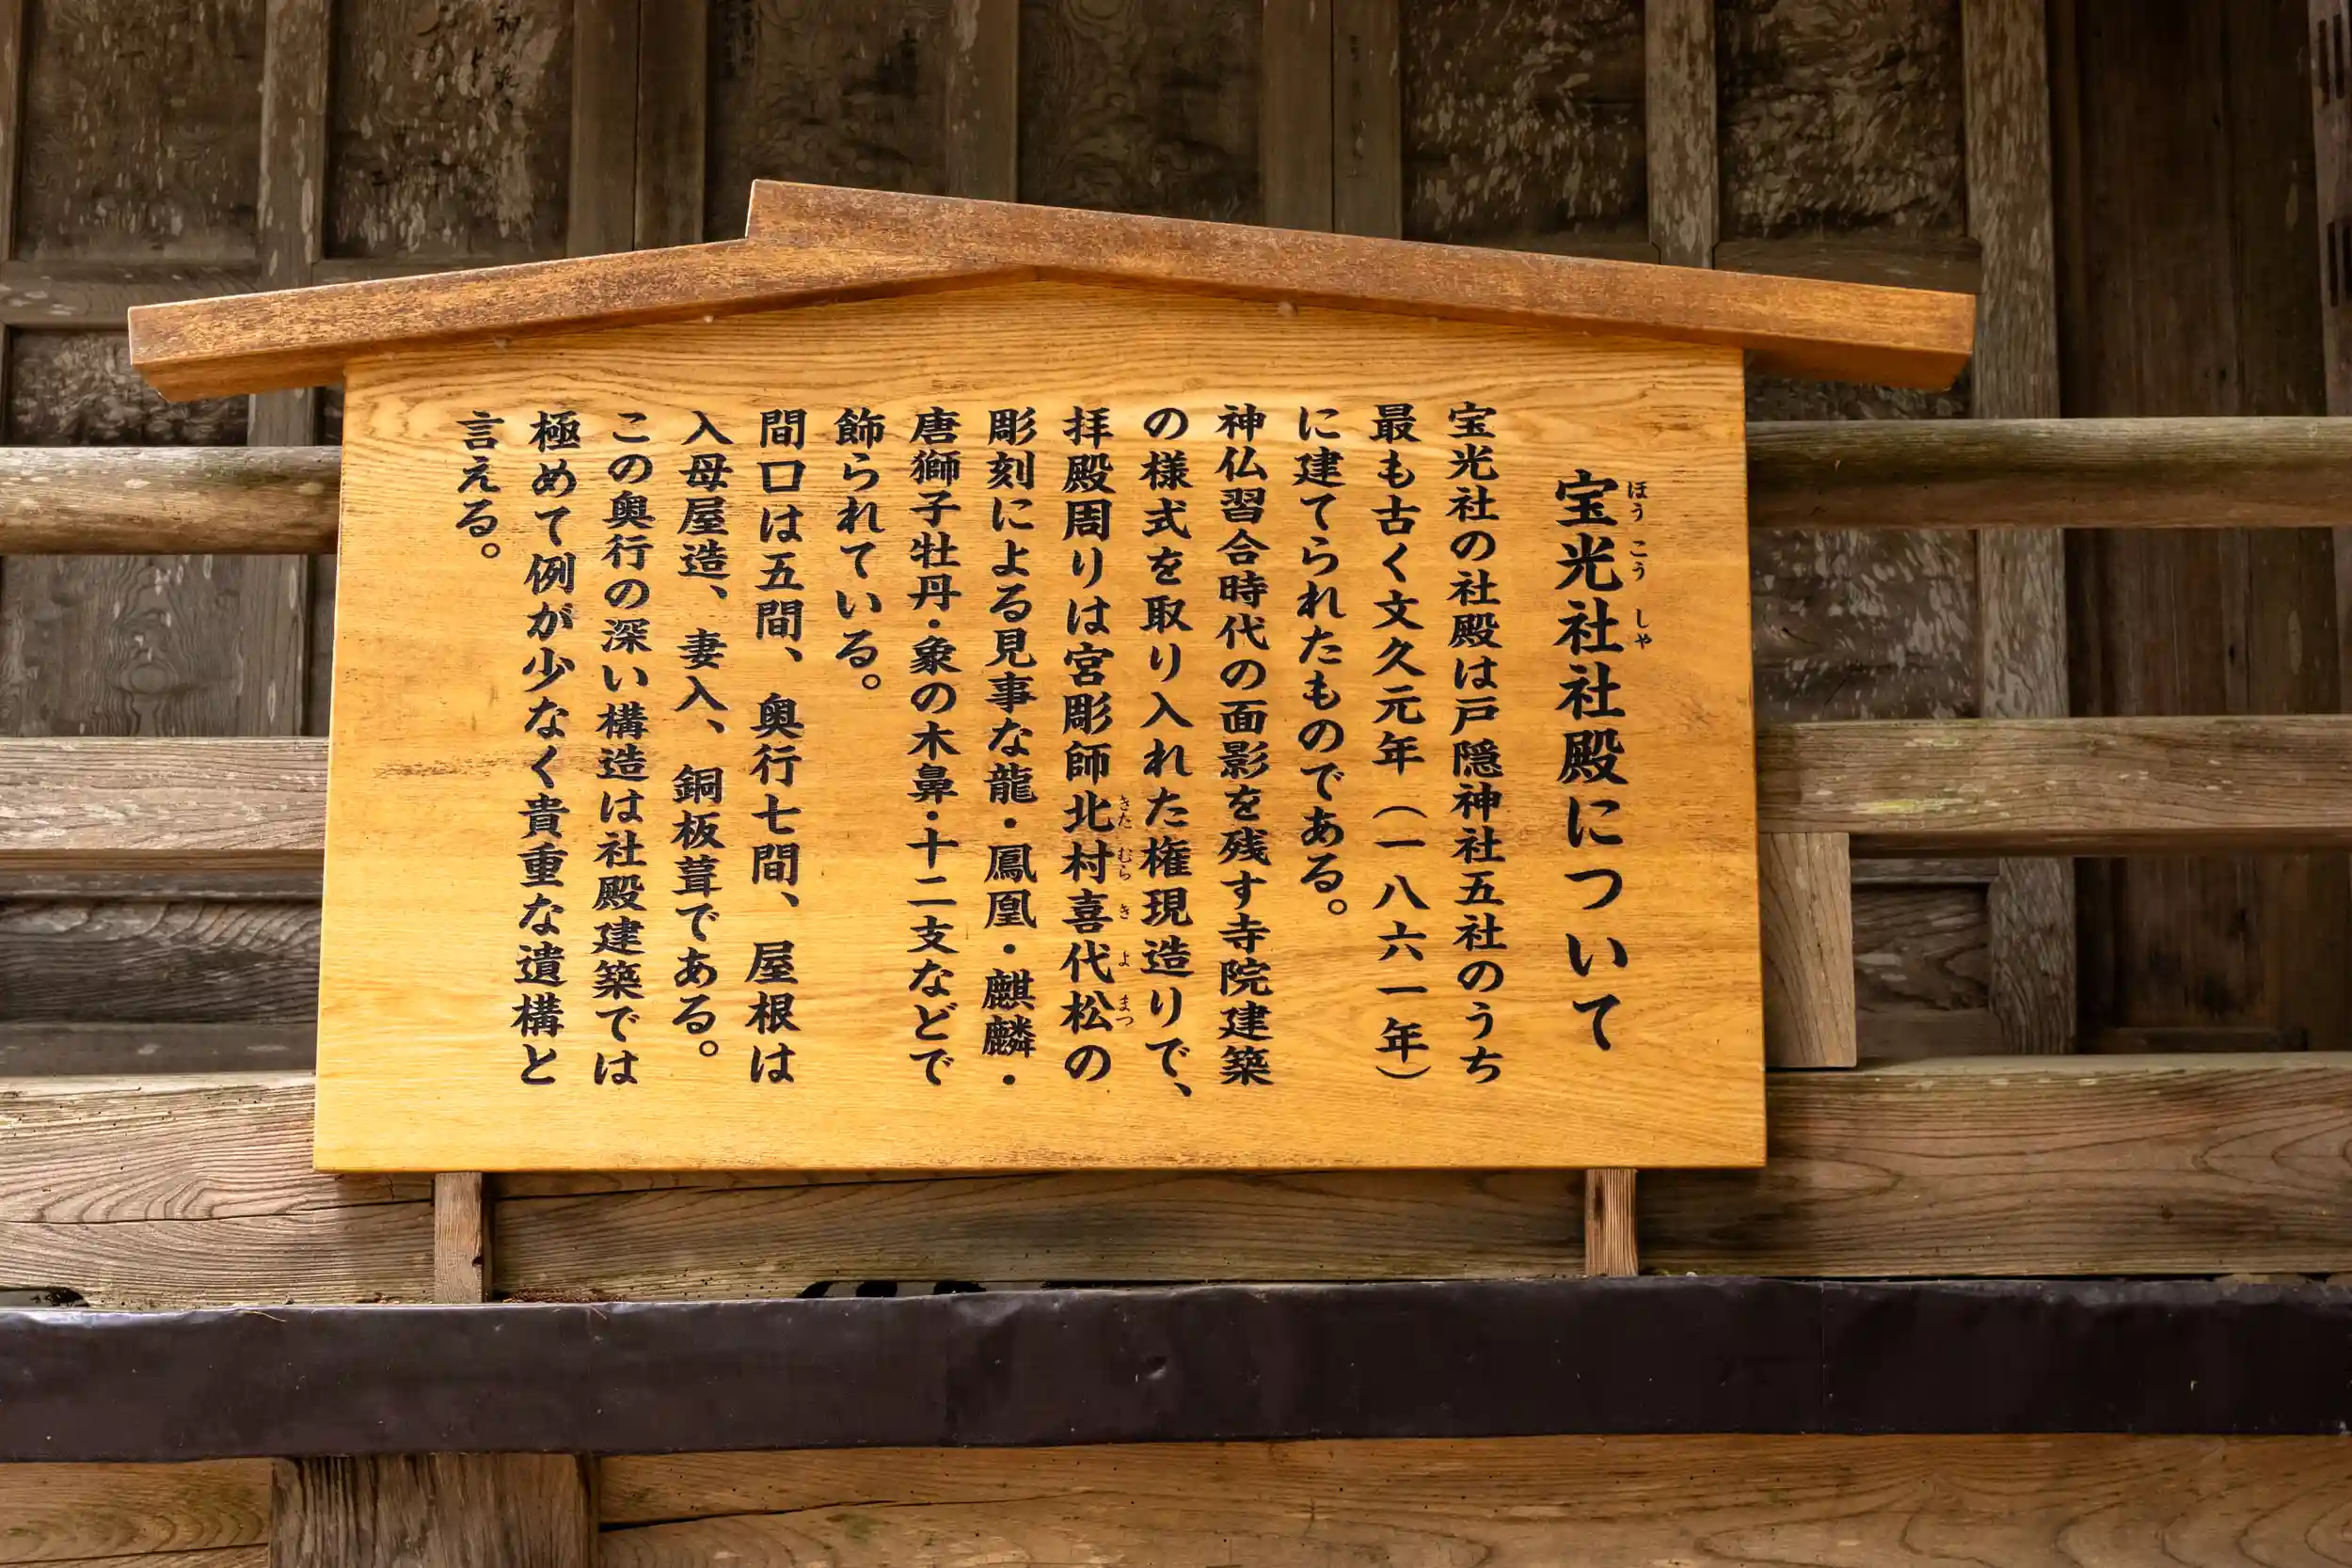 宝光社社殿について
ほうこうしゃ
宝光社の社殿は戸隠神社五社のうち
最も古く文久元年（一八六一年）
に建てられたものである。
神仏習合時代の面影を残す寺院建築
の様式を取り入れた権現造りで、
拝殿周りは宮彫師北村喜代松の
きたむらきよまつ
彫刻による見事な龍・鳳凰・麒麟・
唐獅子牡丹・象の木鼻・十二支などで
飾られている。
間口は五間、奥行七間、屋根は
入母屋造、妻入、銅板葺である。
この奥行の深い構造は社殿建築では
極めて例が少なく貴重な遺構と
言える。